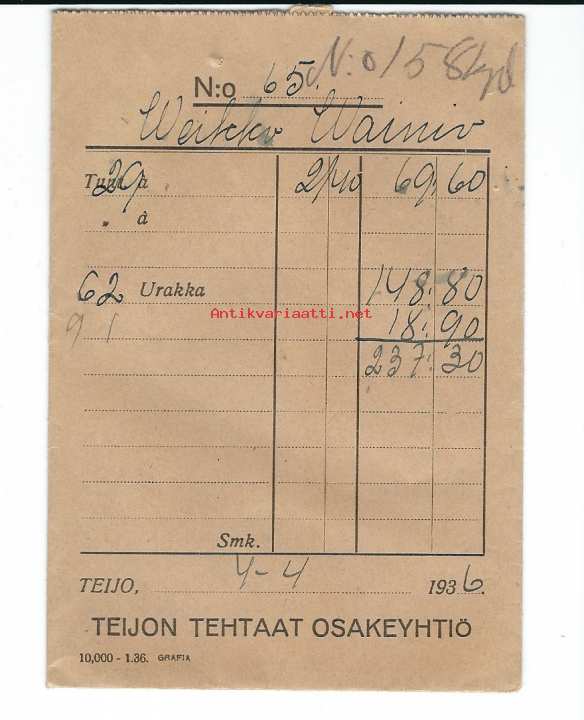 N:o 65. N:o 158
Weikko Wainio
Tunt. à 29 2/40 69: 60
" à
62 Urakka 148: 80
Antikvariaatti.net
91 18: 90
237: 30
Smk.
TEIJO, 4-4 1936.
TEIJON TEHTAAT OSAKEYHTIÖ
10,000 - 1.36. GRAFIA